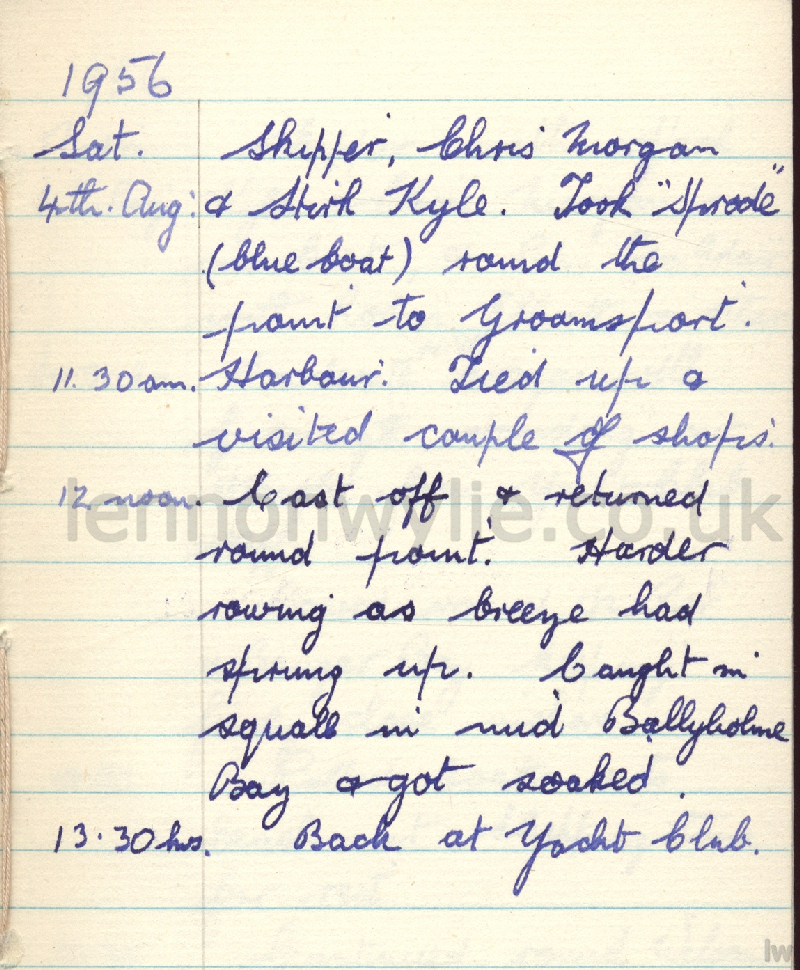 1956
Sat. Skipper, Chris Morgan
4th. Aug. & Stirk Kyle. Took "Sprode"
(blue boat) round the
point to Groomsport.
11.30 am. Harbour. Tied up &
visited couple of shops.
12 noon. Cast off & returned
round point. Harder
rowing as breeze had
sprung up. Caught in
squall in mid Ballyholme
Bay & got soaked.
13.30 hrs. Back at Yacht Club.
lennonwylie.co.uk
lw